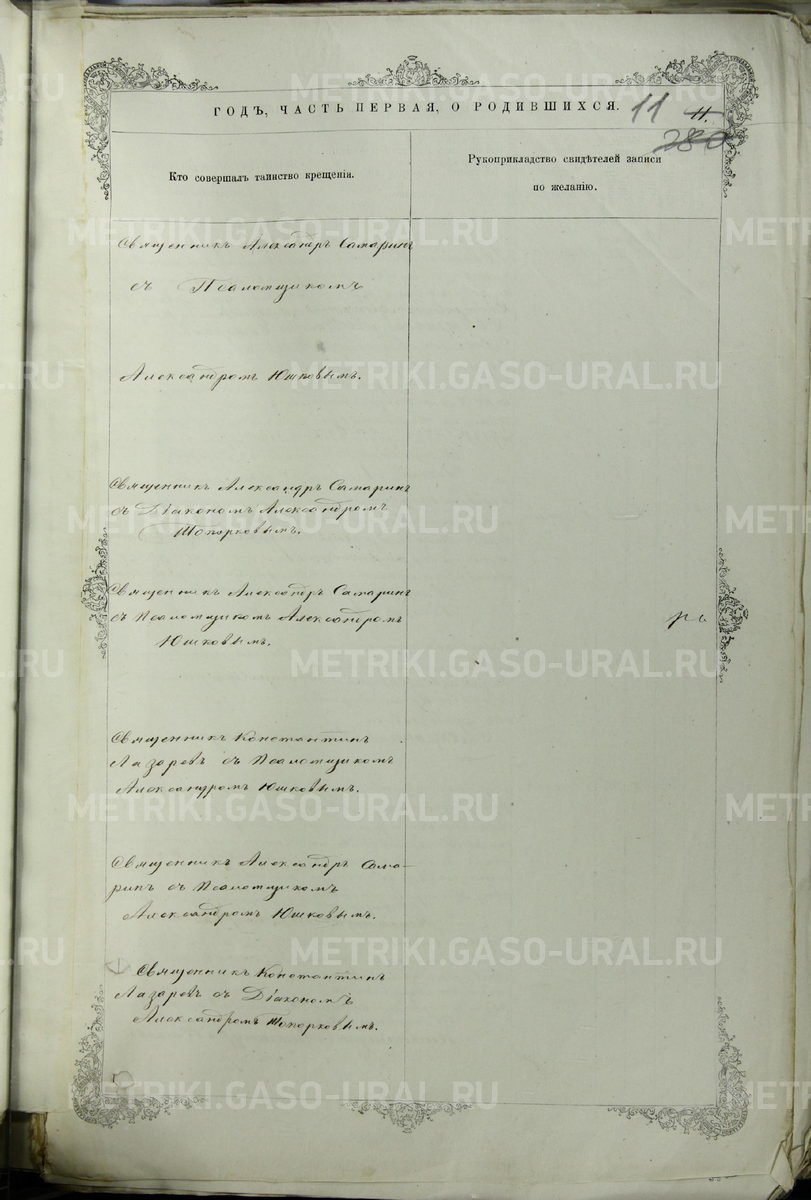 ГОДЪ, ЧАСТЬ ПЕРВАЯ, О РОДИВШИХСЯ.
11
11.
280
Кто совершалъ таинство крещенія.
Рукоприкладство свидѣтелей записи
по желанію.
Священникъ Александръ Самаринъ
съ Псаломщикомъ
Александромъ Юшковымъ.
Священникъ Александръ Самаринъ
съ Діакономъ Александромъ
Топорковымъ.
Священникъ Александръ Самаринъ
съ Псаломщикомъ Александромъ
Юшковымъ.
Священникъ Константинъ
Лазаревъ съ Псаломщикомъ
Александромъ Юшковымъ.
Священникъ Александръ Сама-
ринъ съ Псаломщикомъ
Александромъ Юшковымъ.
Священникъ Константинъ
Лазаревъ съ Діакономъ
Александромъ Топорковымъ.
METRIKI.GASO-URAL.RU